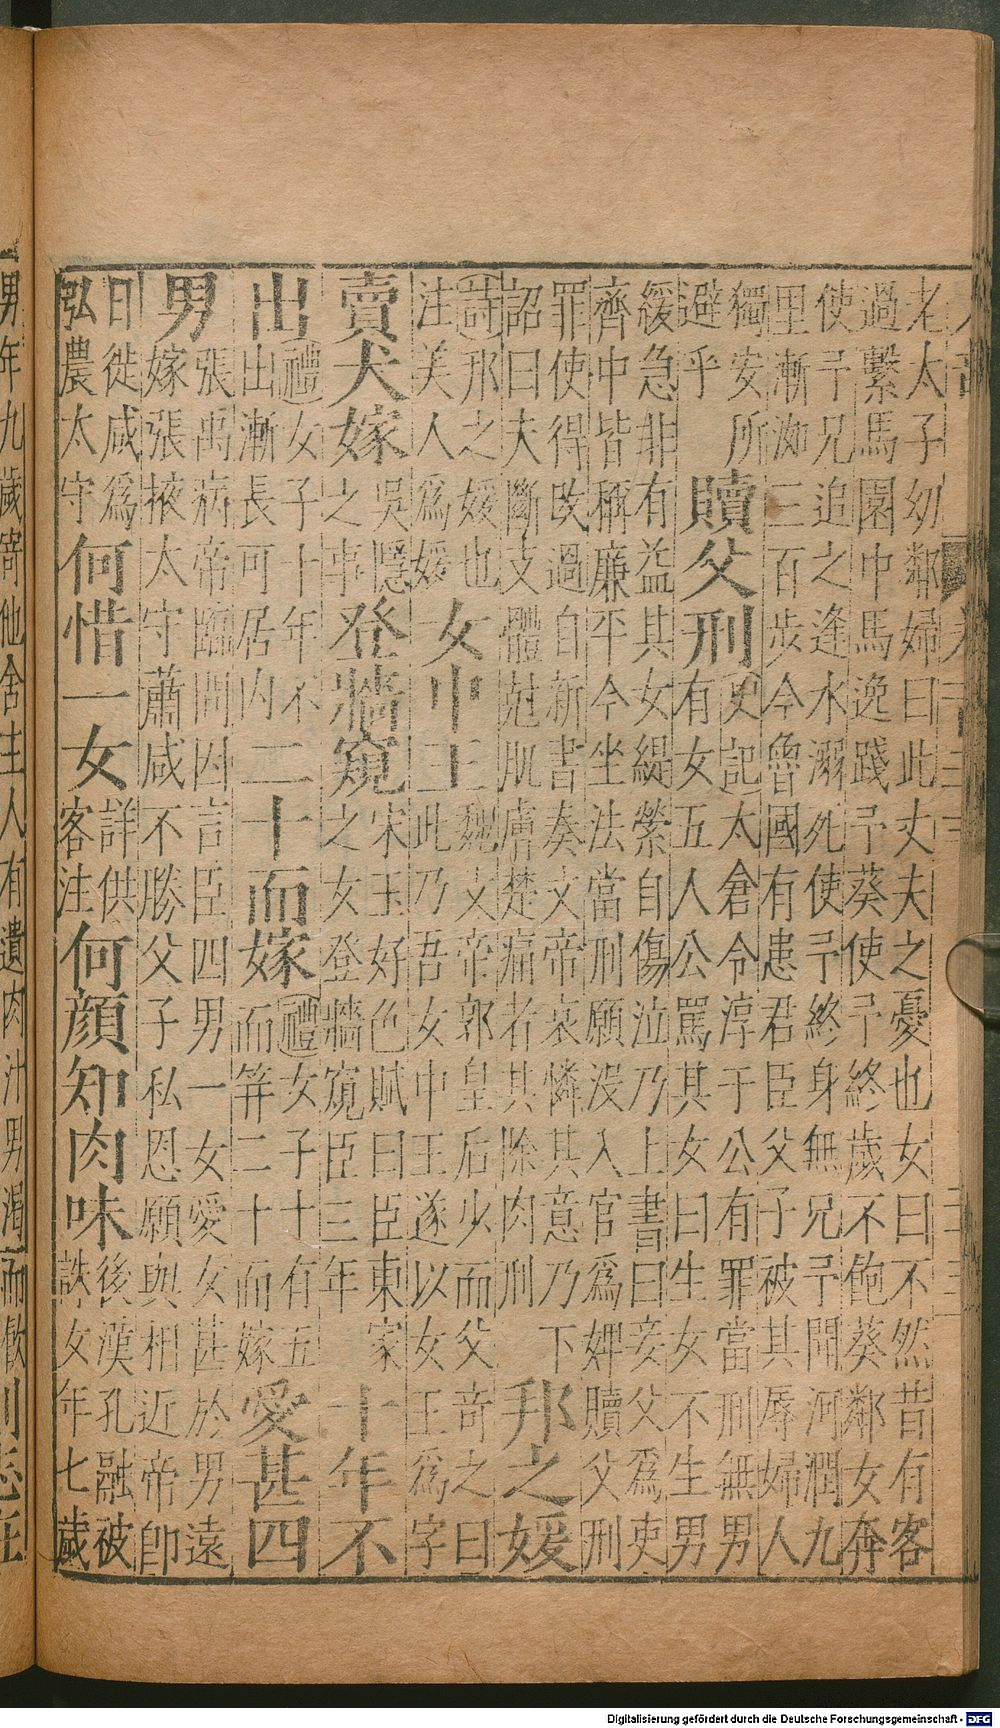 老太子幼鄰婦曰此丈夫之憂也女曰不然昔有客
過繫馬園中馬逸踐予葵使予終歲不飽葵鄰女奔
使予兄追之逢水溺死使予終身無兄予聞河潤九
里漸洳三百步今魯國有患君臣父子被其辱婦人
獨安所
避乎
贖父刑
史記太倉令淳于公有罪當刑無男
有女五人公罵其女曰生女不生男
緩急非有益其女緹縈自傷泣乃上書曰妾父爲吏
齊中皆稱廉平今坐法當刑願沒入官爲婢贖父刑
罪使得改過自新書奏文帝哀憐其意乃下
詔曰夫斷支體尅肌膚楚痛者其除肉刑
邦之媛
詩邦之媛也
注美人爲媛
女中王
魏文帝郭皇后少而父奇之曰
此乃吾女中王遂以女王爲字
賣犬嫁
吳隱
之事
登牆窺
宋玉好色賦曰臣東家
之女登牆窺臣三年
十年不
出
禮女子十年不
出漸長可居內
二十而嫁
禮女子十有五
而笄二十而嫁
愛甚四
男
張禹病帝臨問因言臣四男一女愛女甚於男遠
嫁張掖太守蕭咸不勝父子私恩願與相近帝卽
日徙咸爲
弘農太守
何惜一女
詳供
客注
何顏知肉味
後漢孔融被
誅女年七歲
男年九歲寄他舍主人有遺肉汁男渴而飲
Digitalisierung gefördert durch die Deutsche Forschungsgemeinschaft - DFG